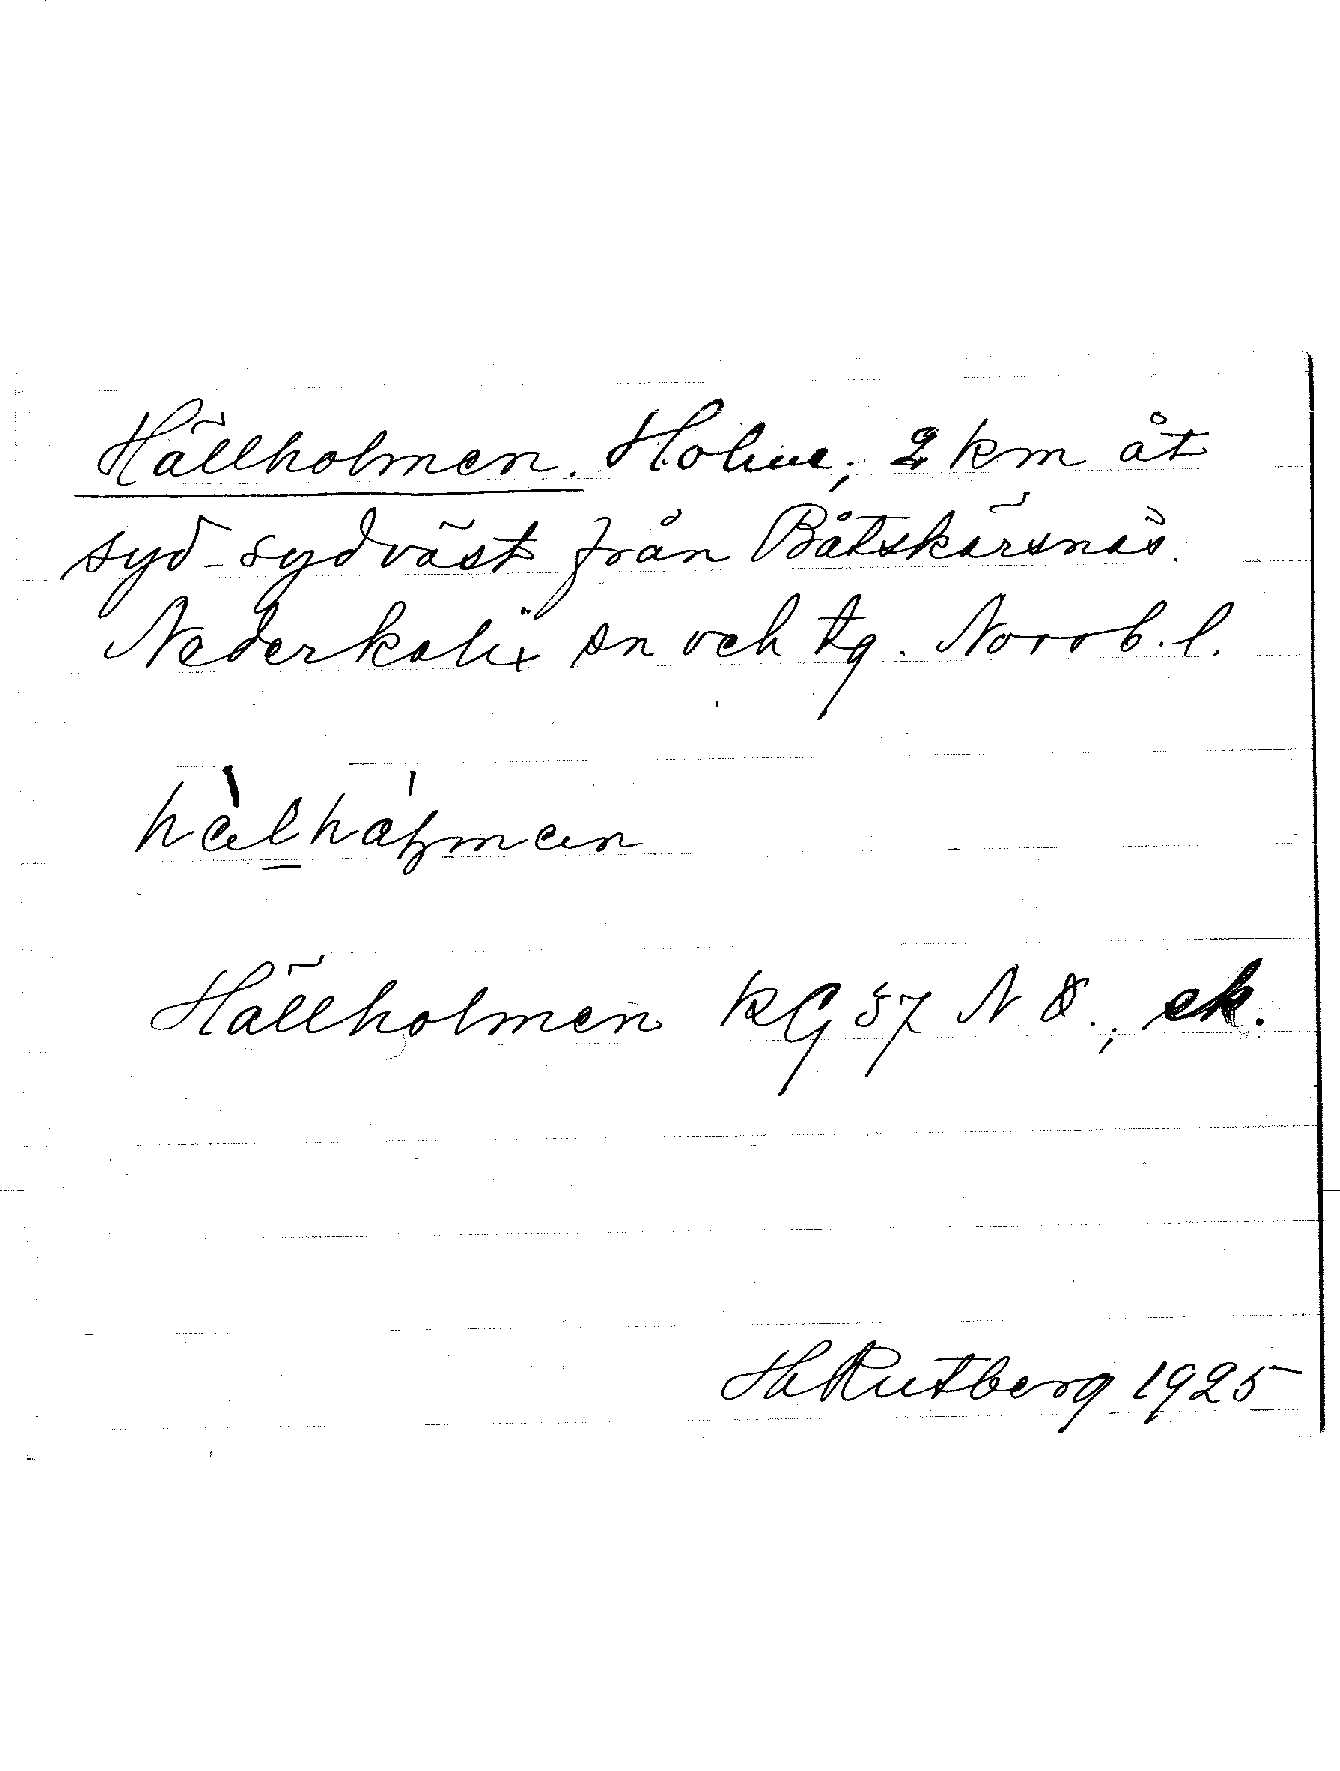 Hällholmen. Holme, 2 km åt
syd-sydväst från Båtskärsnäs.
Nederkalix sn och tg. Norrb. l.
Hällholmen KG 57 NO., ek.
H Rutberg 1925